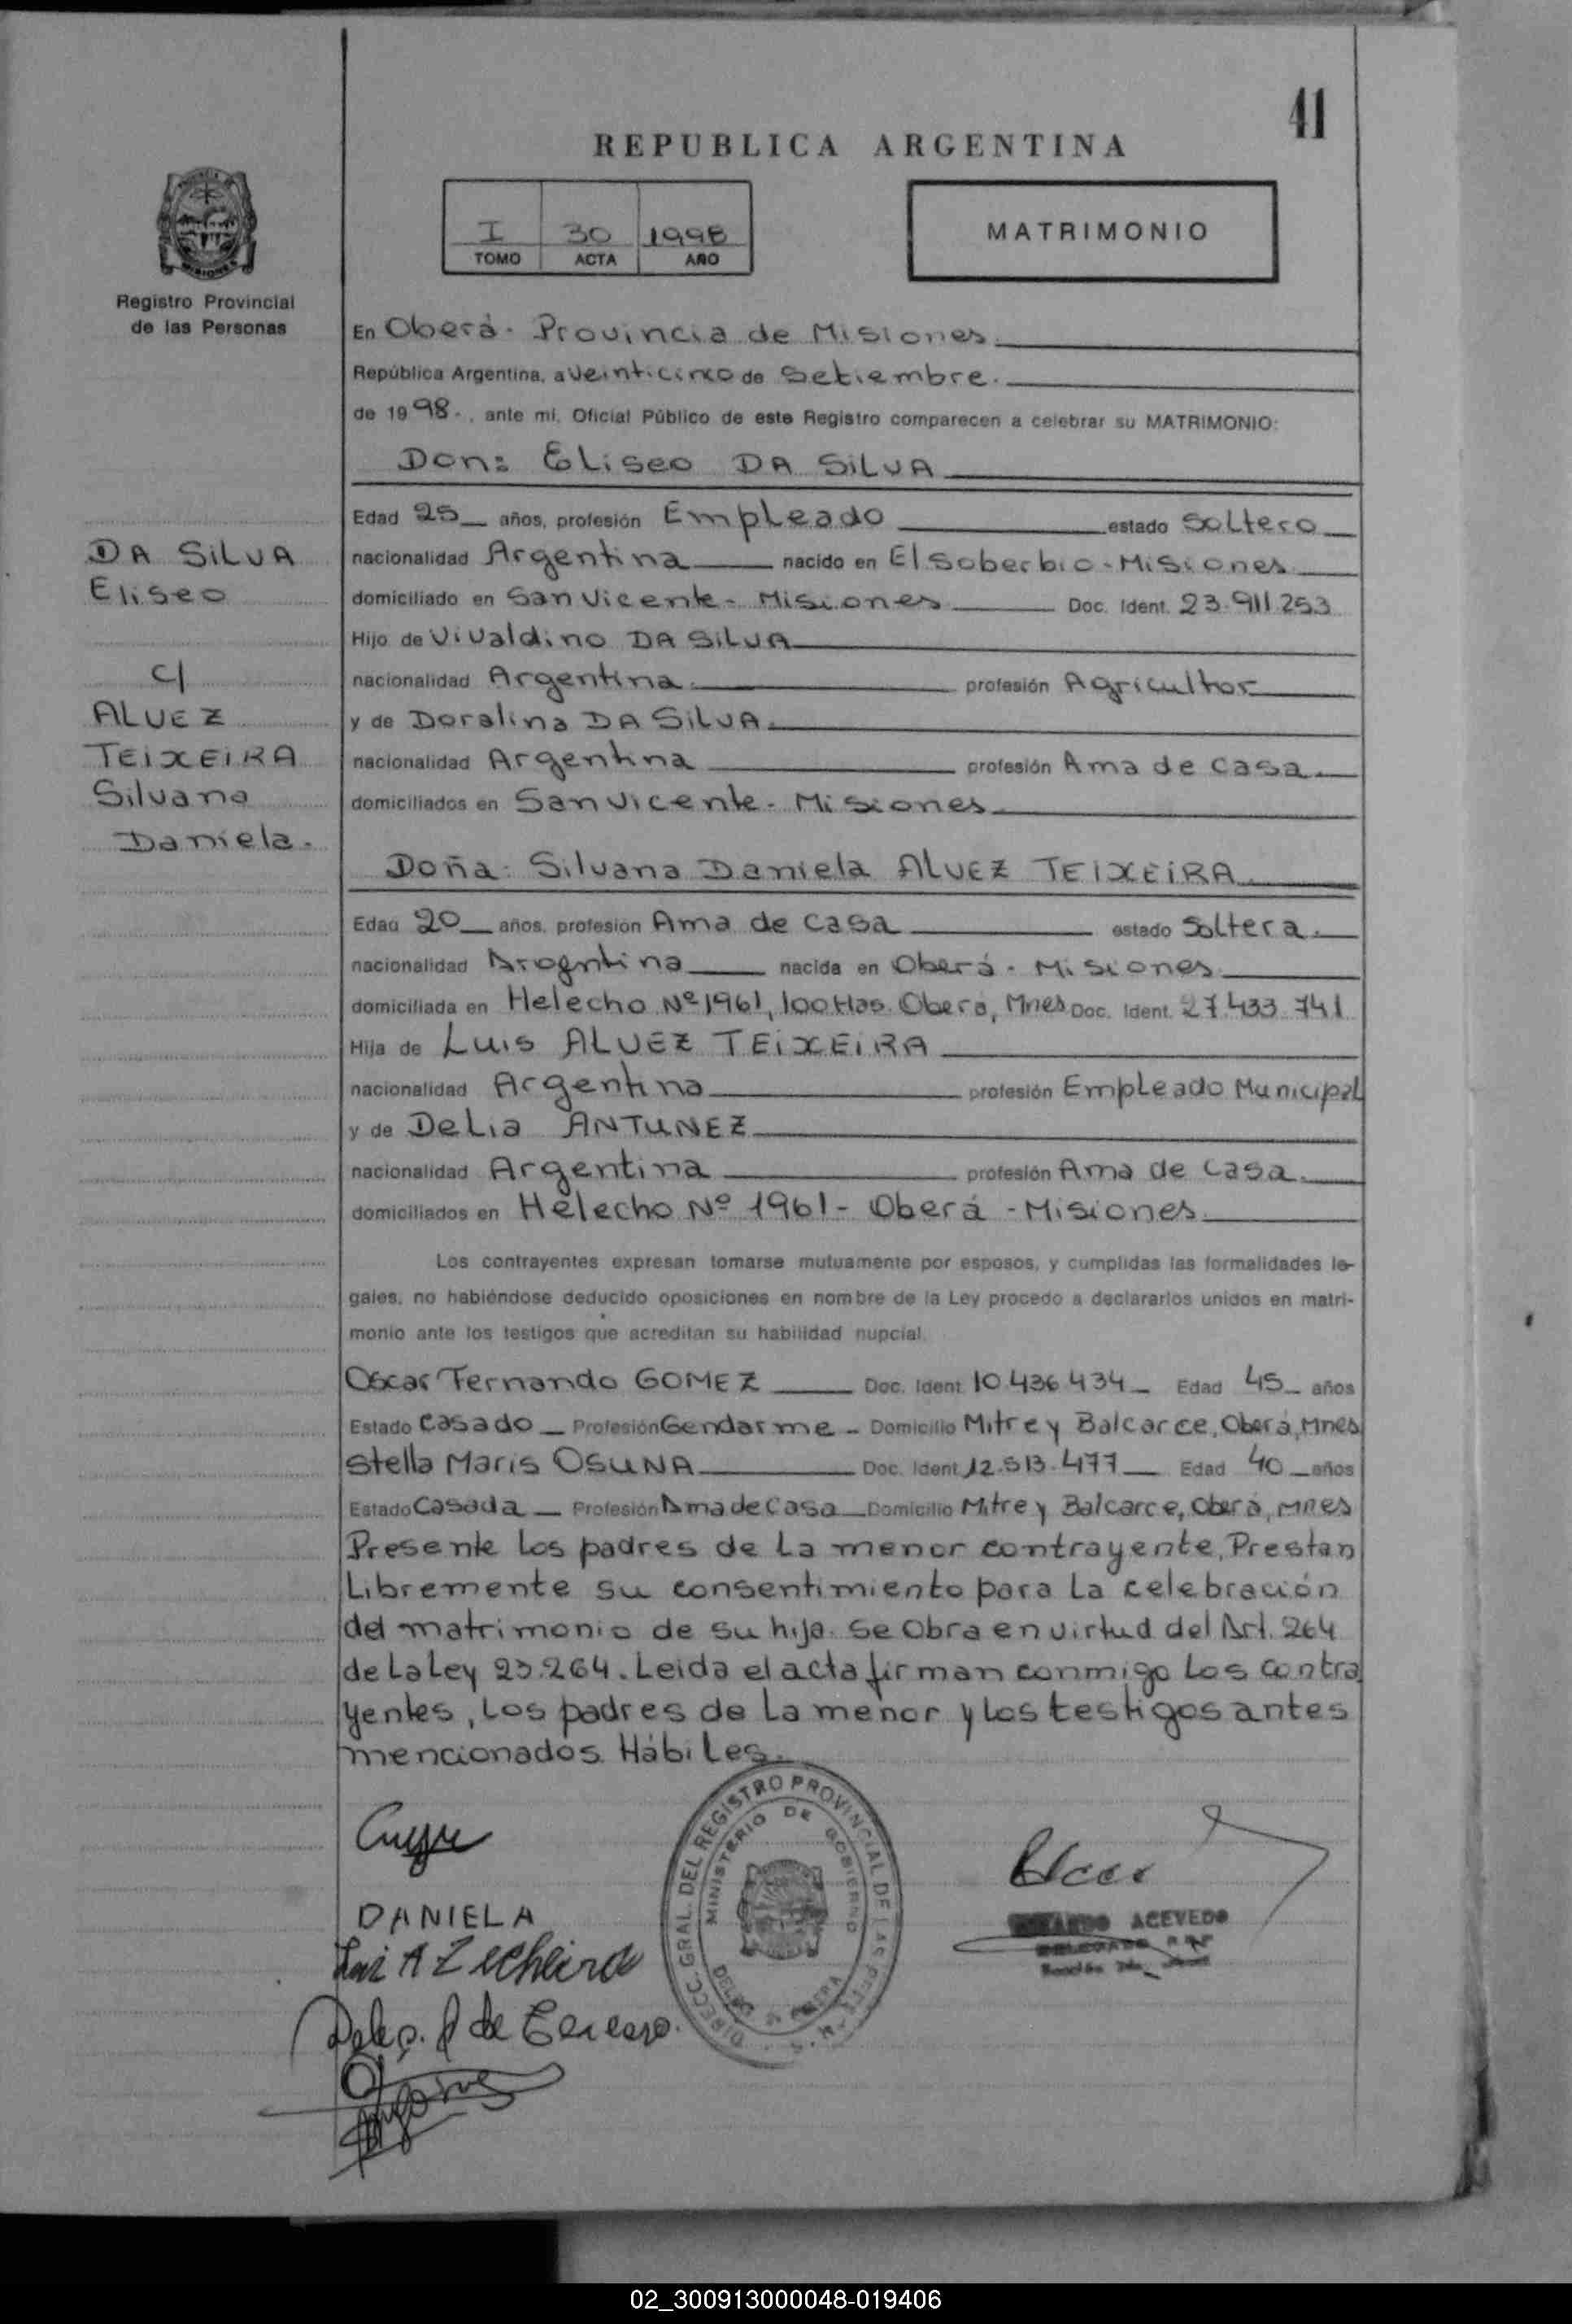 41
REPUBLICA ARGENTINA
I 30 1998
TOMO ACTA AÑO
MATRIMONIO
Registro Provincial
de las Personas
En Oberá - Provincia de Misiones.
República Argentina, a veinticinco de Setiembre.
de 1998., ante mi, Oficial Público de este Registro comparecen a celebrar su MATRIMONIO:
Don: Eliseo DA SILVA
Edad 25 años, profesión Empleado estado Soltero
nacionalidad Argentina nacido en El Soberbio - Misiones
domiciliado en San Vicente - Misiones Doc. Ident. 23.911.253
Hijo de Vivaldino DA SILVA
nacionalidad Argentina. profesión Agricultor
y de Doralina DA SILVA.
nacionalidad Argentina profesión Ama de casa.
domiciliados en San Vicente - Misiones.
DA SILVA
Eliseo
c/
ALVEZ
TEIXEIRA
Silvana
Daniela.
Doña: Silvana Daniela ALVEZ TEIXEIRA.
Edad 20 años, profesión Ama de casa estado Soltera.
nacionalidad Argentina nacida en Oberá - Misiones.
domiciliada en Helecho Nº 1961, 100 Has. Oberá, Mnes Doc. Ident. 27.433.741
Hija de Luis ALVEZ TEIXEIRA
nacionalidad Argentina profesión Empleado Municipal
y de Delia ANTUNEZ
nacionalidad Argentina profesión Ama de casa.
domiciliados en Helecho Nº 1961 - Oberá - Misiones.
Los contrayentes expresan tomarse mutuamente por esposos, y cumplidas las formalidades le-
gales, no habiéndose deducido oposiciones en nombre de la Ley procedo a declararlos unidos en matri-
monio ante los testigos que acreditan su habilidad nupcial.
Oscar Fernando GOMEZ Doc. Ident 10.436.434 Edad 45 años
Estado Casado Profesión Gendarme - Domicilio Mitre y Balcarce, Oberá, Mnes
Stella Maris OSUNA Doc. Ident 12.513.477 Edad 40 años
Estado Casada Profesión Ama de casa Domicilio Mitre y Balcarce, Oberá, Mnes
Presente los padres de la menor contrayente, Prestan
Libremente su consentimiento para la celebración
del matrimonio de su hija. Se Obra en virtud del Art. 264
de la Ley 23.264. Leida el acta firman conmigo los contra
yentes, los padres de la menor y los testigos antes
mencionados Hábiles.
DIRECC. GRAL. DEL REGISTRO PROVINCIAL DE LAS
MINISTERIO DE GOBIERNO
DANIELA
ACEVEDO
02_300913000048-019406